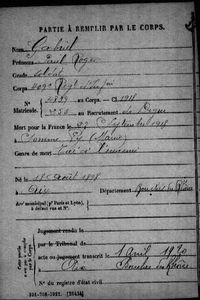 PARTIE À REMPLIR PAR LE CORPS.
Nom Gabriel
Prénoms Paul Roger
Grade soldat
Corps 409e Régt d'Inf
N° 4899 au Corps. — Cl. 1918
Matricule. au Recrutement
Mort pour la France le 27 Septembre 1918
à Somme Py (Marne)
Genre de mort Tué à l'ennemi
Né le Août 1898
à Aix Département Bouches du Rhône
Arr' municipal (p' Paris et Lyon),
à défaut rue et N°.
Jugement rendu le
par le Tribunal de
acte ou jugement transcrit le 1 Avril 1920
à Aix Bouches du Rhône
N° du registre d'état civil